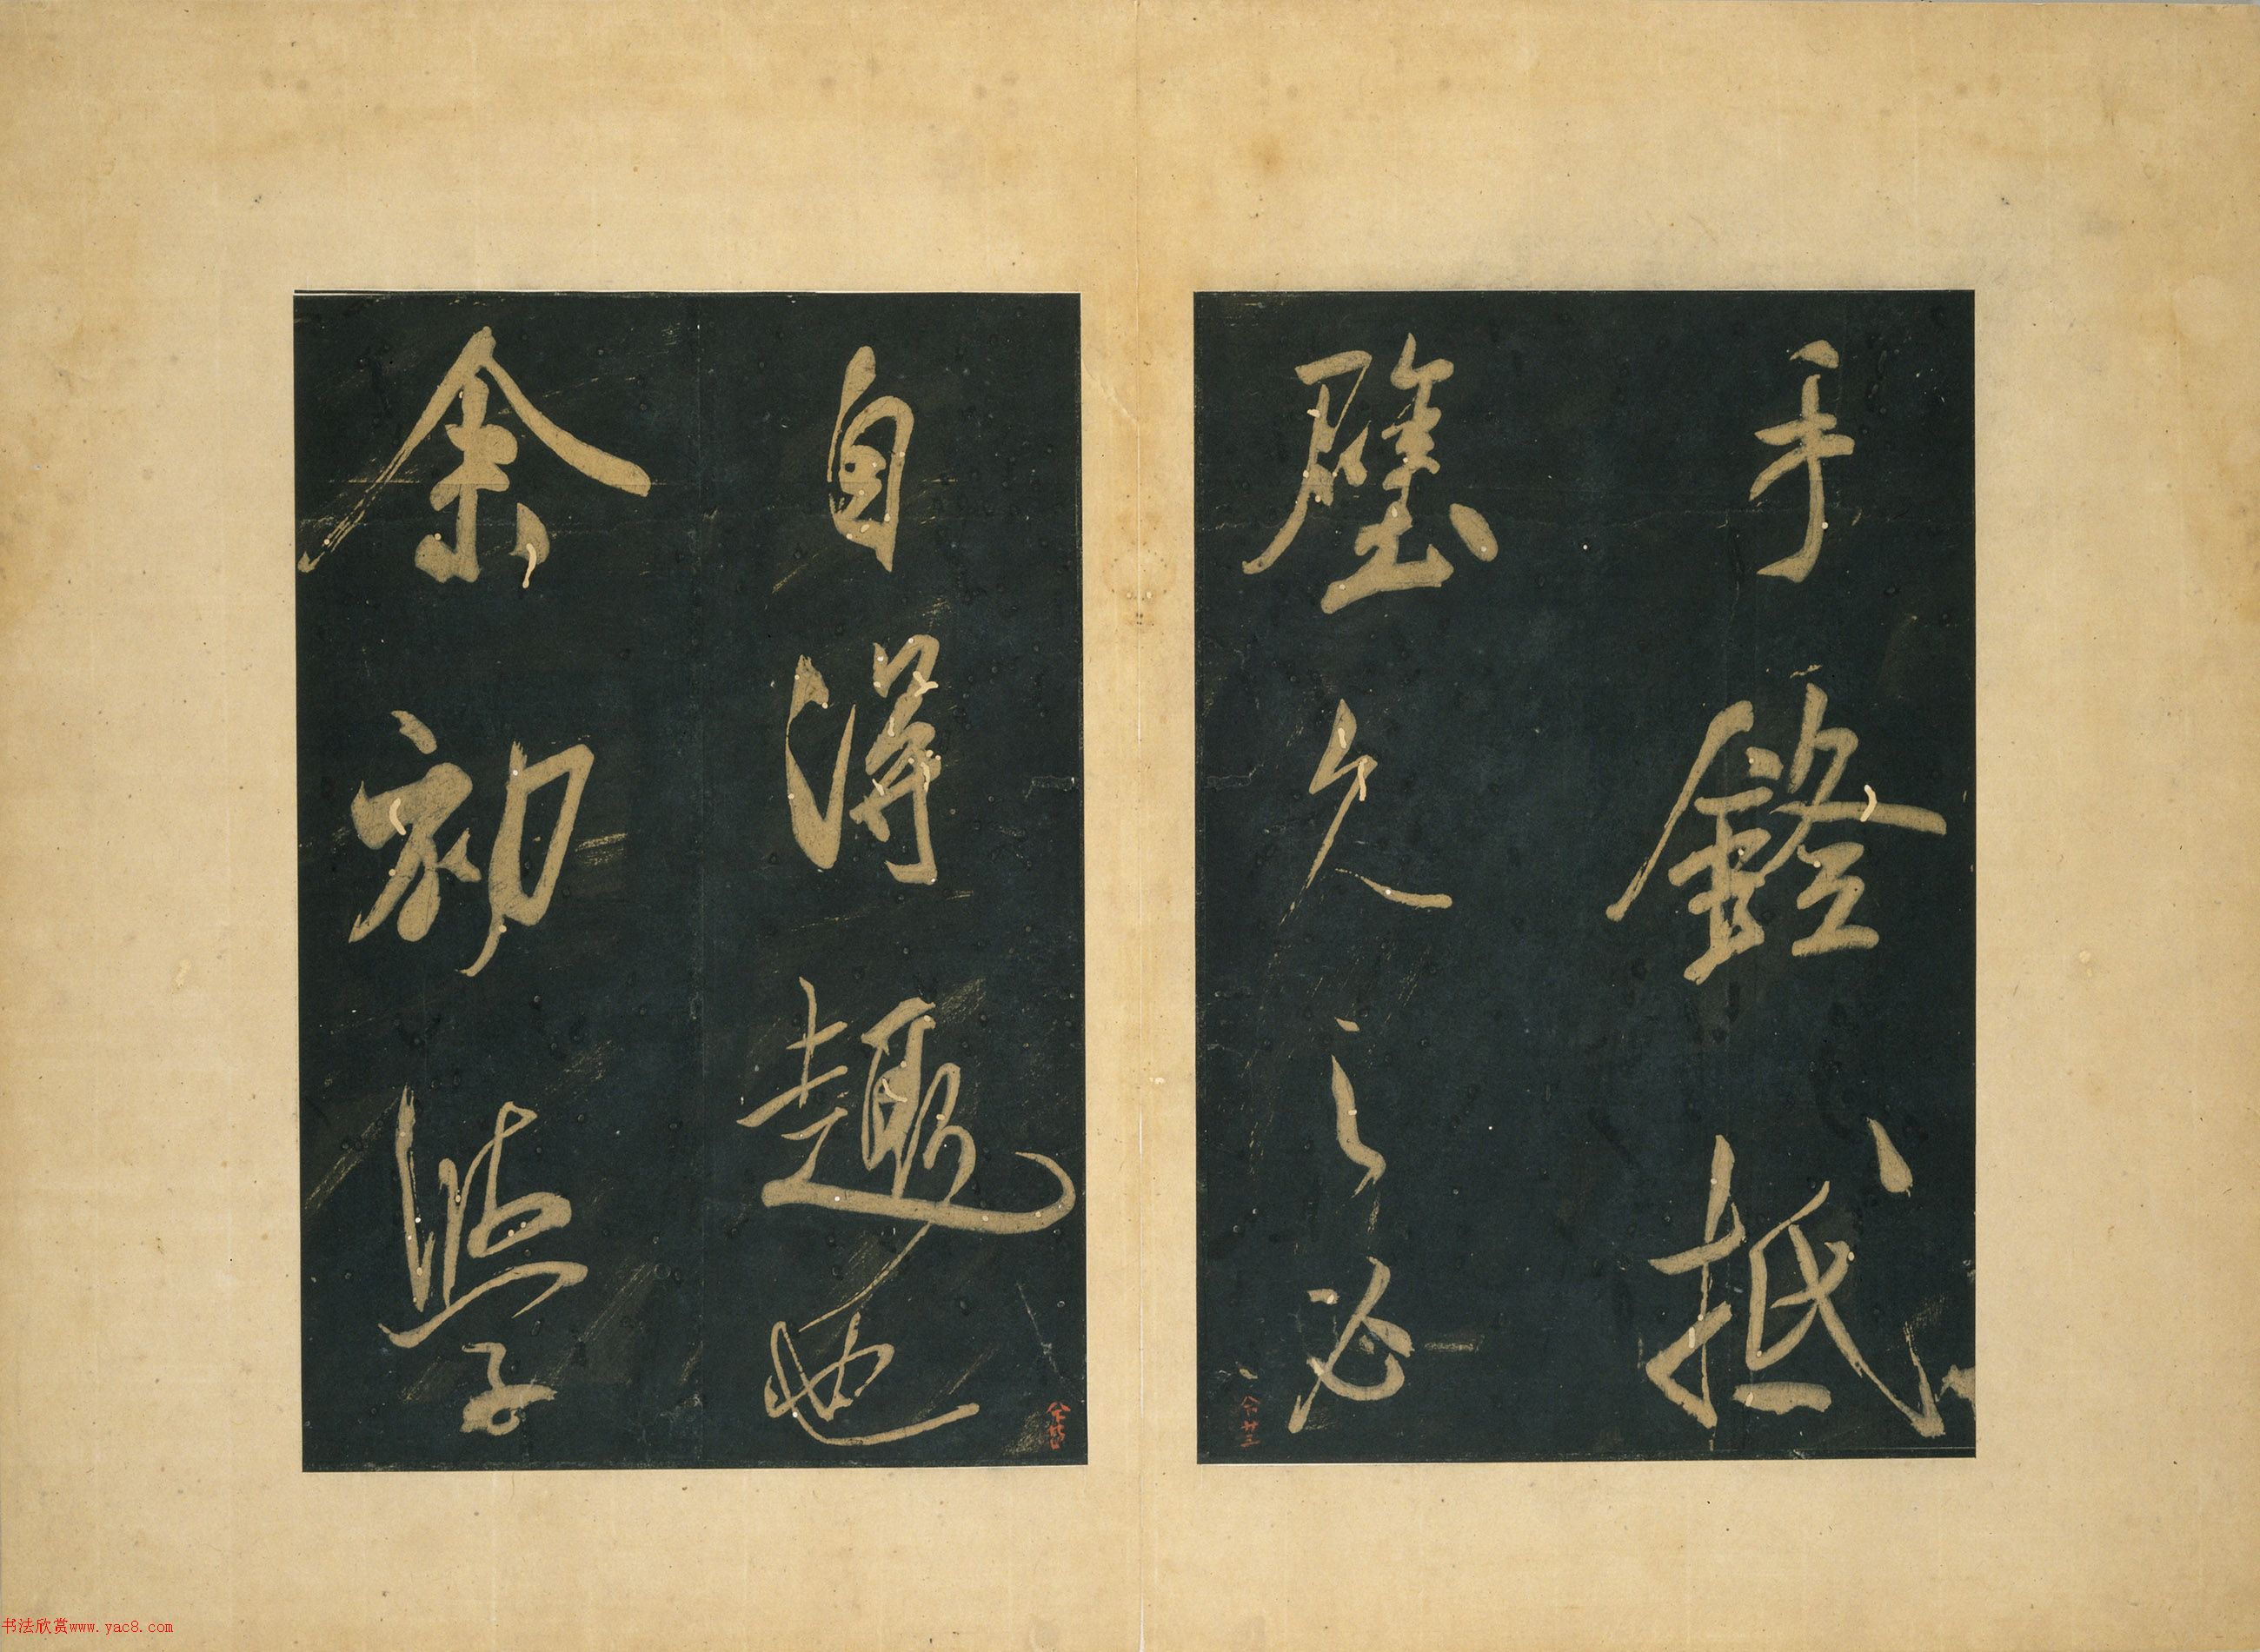 手鋒抵
壁久之必
自得趣也
余初學
书法欣赏www.yac8.com